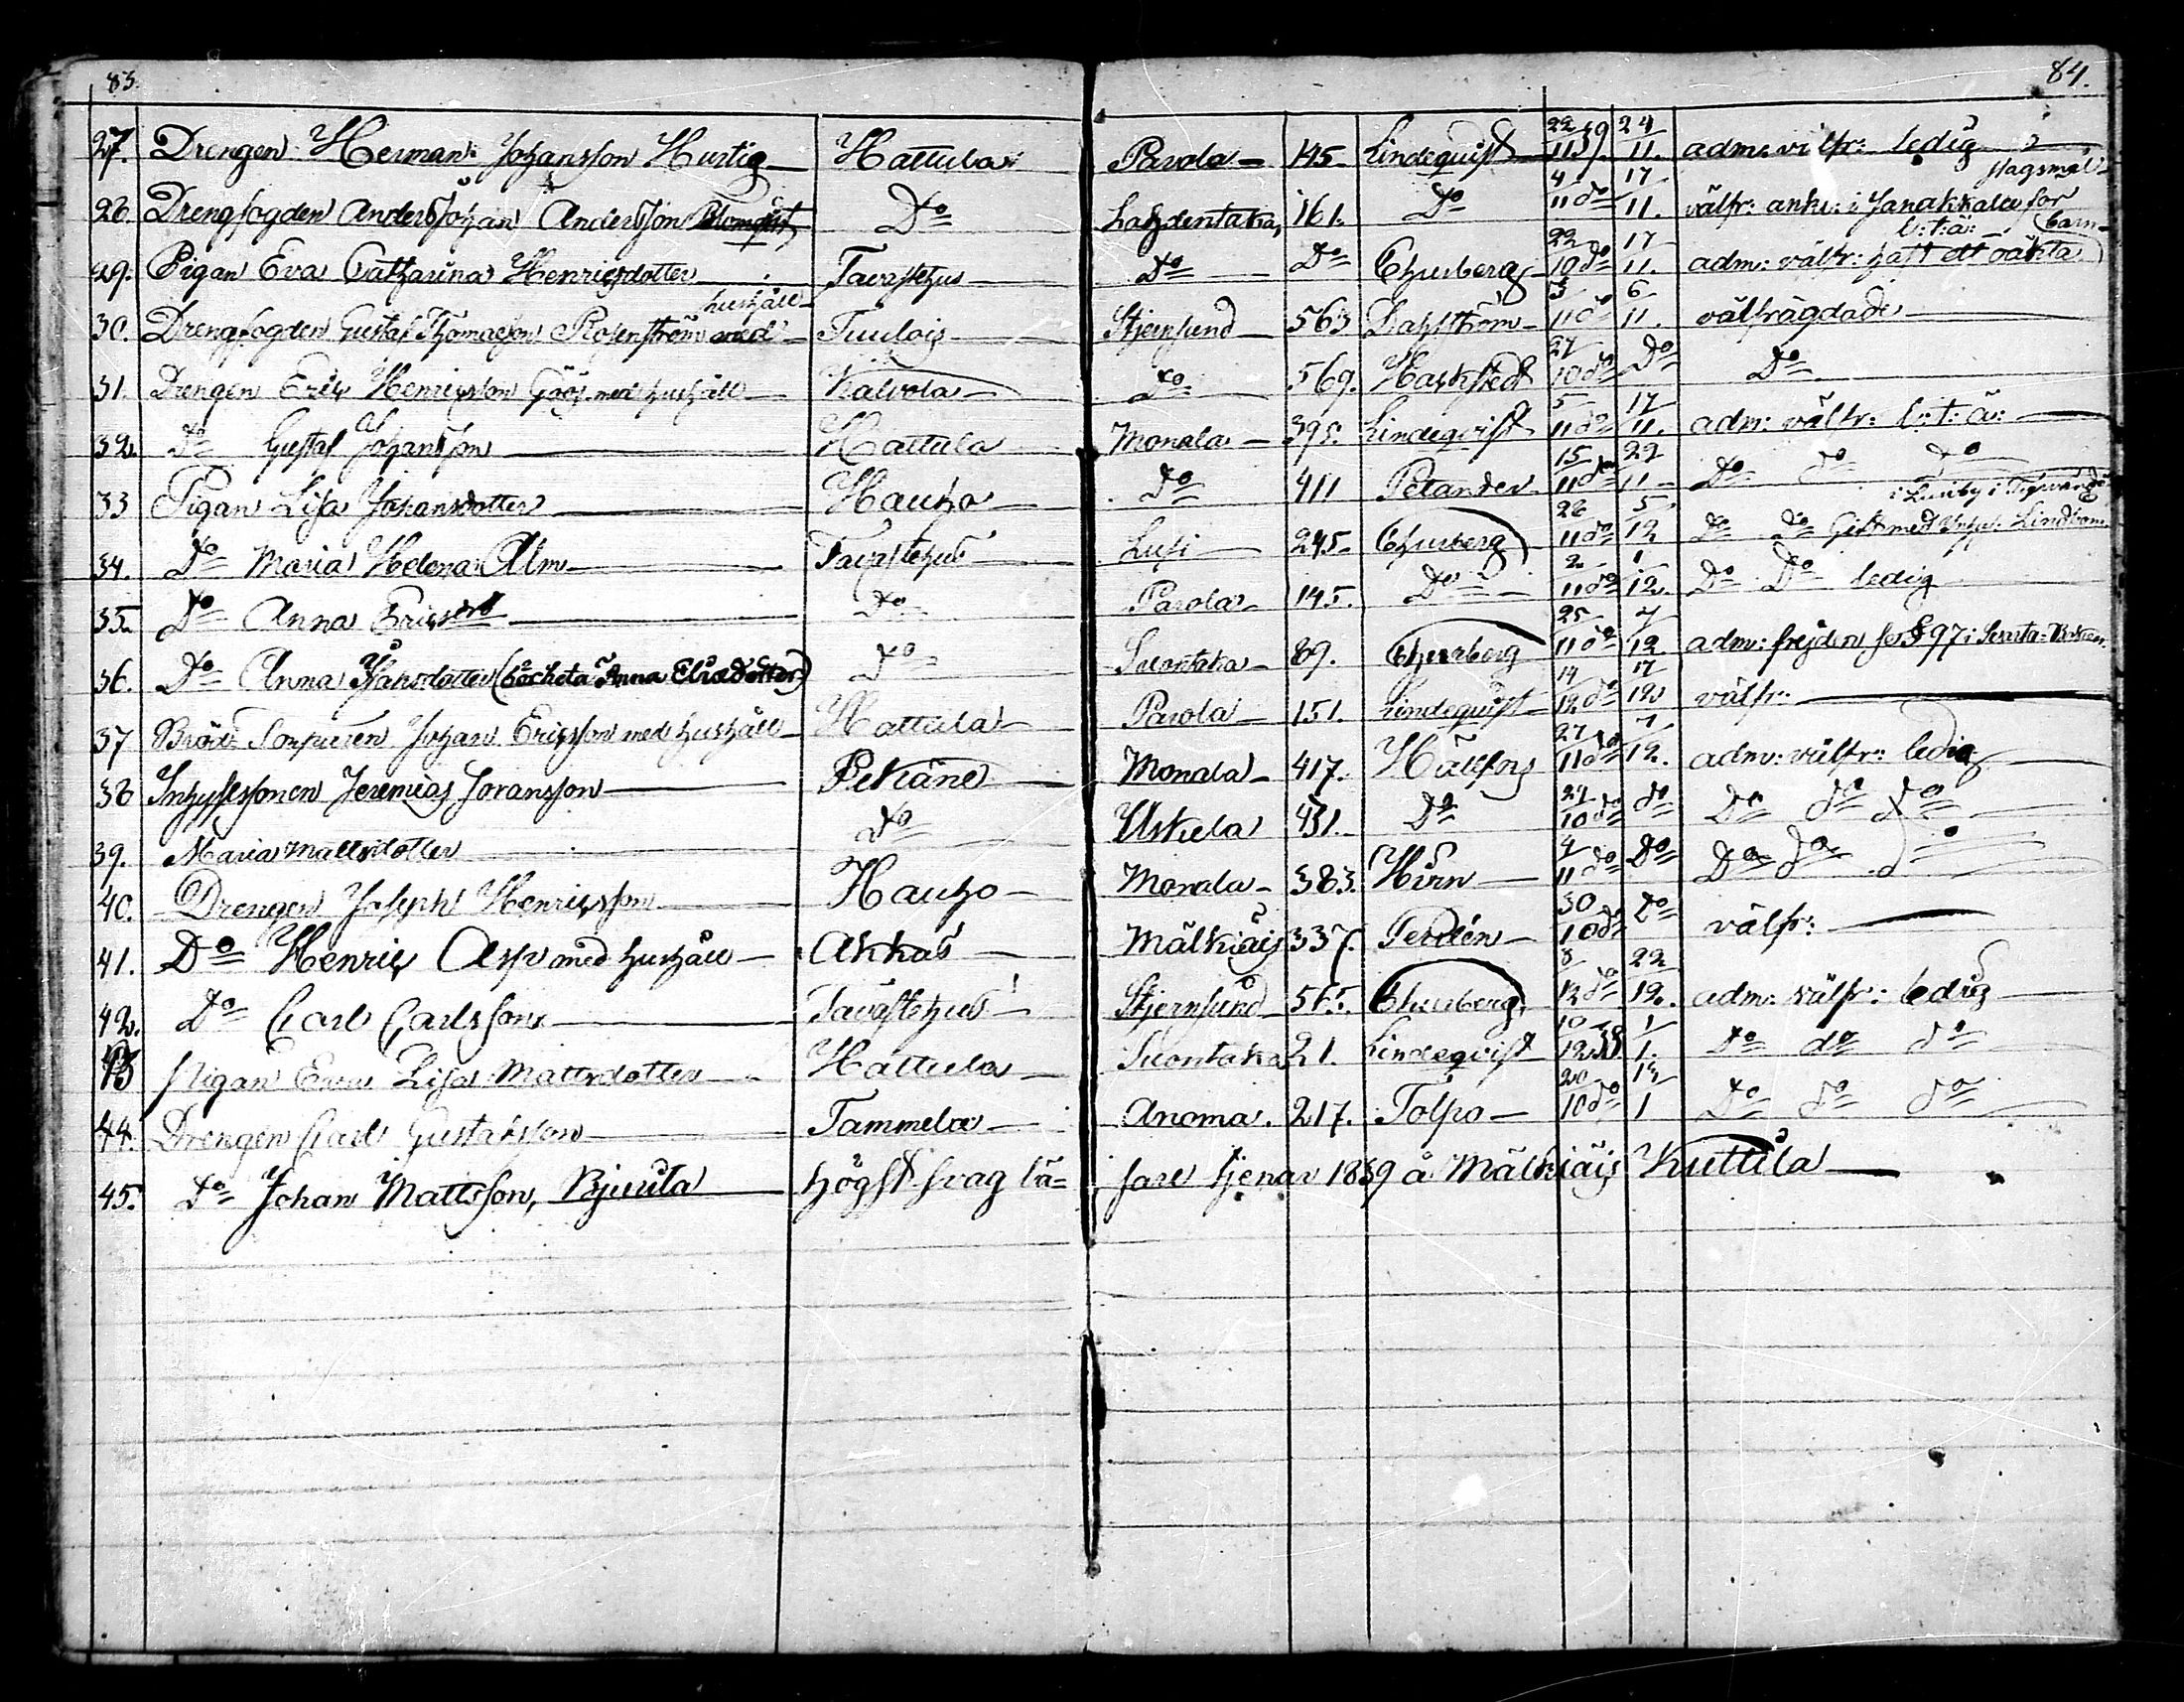 83. 84.
27. Drengen Herman Johansson Hurtig Hattula Parola 145. Lindequist 22/11 39. 24/11. adm: välfr: ledig
28. Drengfogden Anders Johan Andersson Blomqvist Do Lahdentaka, 161. Do 4/11 do 17/11. välfr: ankl: i Janakkala för slagsmål
29. Pigan Eva Catharina Henricsdotter Tavastehus Do Do Churberg 22/10 do 17/11. adm: välfr: haft ett oäkta barn l: t: ä:
30. Drengfogden Gustaf Thomasson Rosenström med hushåll Tuulois Stjernsund 563 3/11 do 6/11. välfrägdade
31. Drengen Eric Henricsson Göös med hushåll Kalvola Do 569. 27/10 do Do Do
32. Do Gustaf Johansson Hattula Monala 395. Lindeqvist 5/11 do 17/11. adm: välfr: l: t: ä:
33 Pigan Lisa Johansdotter Hauho Do 411 Petander 15/11 do 22/11 Do do do
34. Do Maria Helena Alm Tavastehus Lusi 245. Churberg 28/11 do 5/12 Do Do Gift med Inhys: Lindbom i
35. Do Anna Ericsd Do Parola 145. Do 2/11 do 1/12. Do Do ledig
36. Do Anna Johansdotter (bör heta Anna Elisdotter) Do Suontaka 89. Churberg 25/11 do 7/12 adm: frejden se § 97 i
37 Johan Ericsson med hushåll Hattula Parola 151. Lindequist 14/12 do 17/12 välfr:
38 Inhysessonen Jeremias Joransson Petäne Monala 417. Hällfors 27/11 do 7/12. adm: välfr: ledig
39. Maria Mattsdotter Do Uskila 431. Do 29/10 do do Do do do
40. Drengen Joseph Henricsson Hauho Monala 383. Hirn 9/11 do Do Do do do
41. Do Henric Asp med hushåll Akkas Mälkiäis 337. 30/10 do Do välfr:
42. Do Carl Carlsson Tavastehus Stjernsund 565. Churberg, 8/12 do 22/12. adm: välfr: ledig
43 Pigan Eva Lisa Mattsdotter Hattula Suontaka 21. Lindeqvist 10/12 38 1/1. Do do do
44. Drengen Carl Gustafsson Tammela Anoma. 217. Tolpo 20/10 do 19/1 Do do do
45. Do Johan Mattsson, Bjurila högst svag läsare tjenar 1839 å Mälkiäis Kuttila